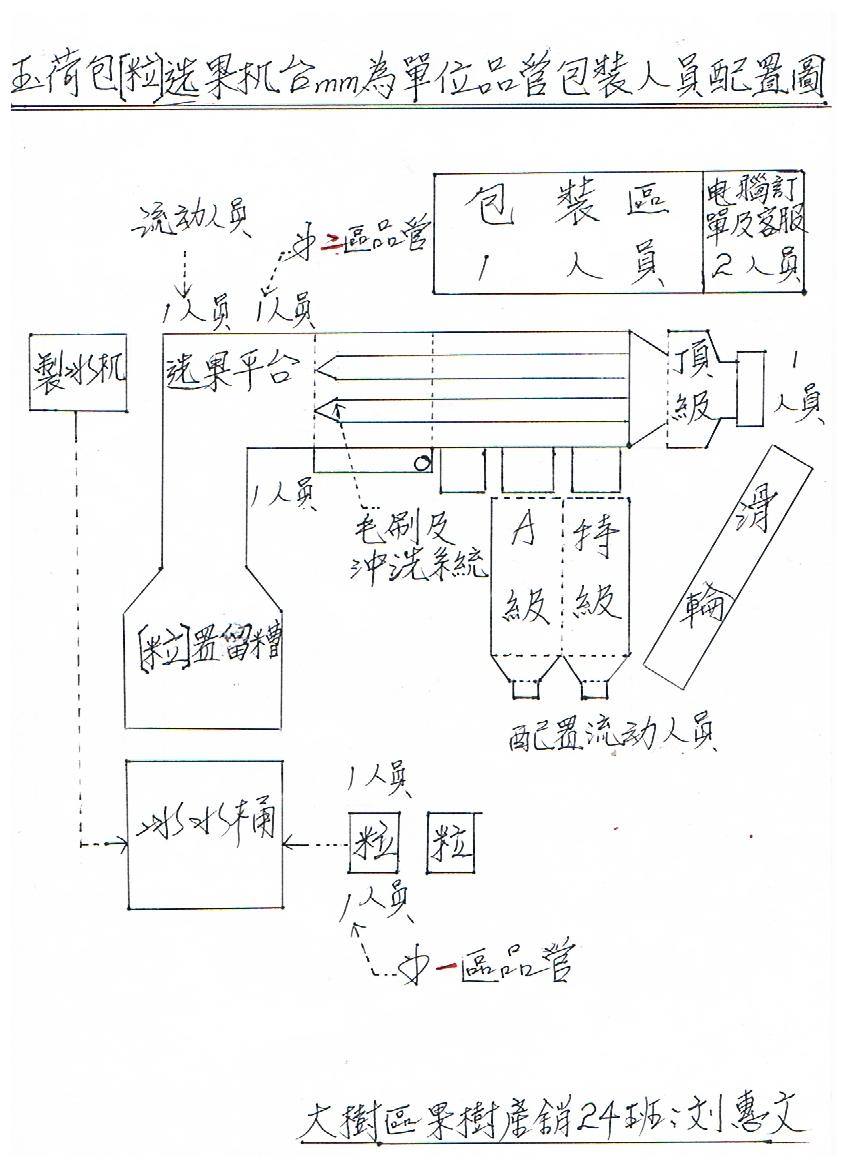 玉荷包[粒]选果机台mm為單位品管包裝人員配置圖
包裝區
1人員
电腦訂
單及客服
2人員
流动人員
中二區品管
1人員
1人員
製冰机
选果平台
頂級
1人員
1人員
毛刷及
沖洗系統
A級
特級
滑輪
[粒]置留糟
配置流动人員
1人員
冰水桶
粒
粒
1人員
中一區品管
大樹區果樹產銷24班:刘惠文